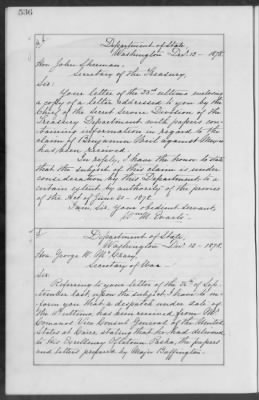 536
Department of State,
Washington Dec. 12 - 1878.
Hon John Sherman
Secretary of the Treasury.
Sir:
Your letter of the 25th ultimo enclosing
a copy of a letter addressed to you by the
Chief of the Secret Service Division of the
Treasury Department with papers con-
taining information in regard to the
claim of Benjamin Weil against Mexico
has been received.
In reply, I have the honor to state
that the subject of this claim is under
consideration by this Department to a
certain extent by authority of the provisos
of the Act of June 20 - 1878.
I am Sir, your obedient servant,
Wm M. Evarts.
Department of State,
Washington Dec. 12 - 1878.
Hon. George W. McCrary,
Secretary of War
Sir
Referring to your letter of the of Sep-
tember last, upon the subject, I have to in-
form you that a despatch under date of
the ultimo, has been received from Mr
Comanos Vice Consul General of the United
States at Cairo stating that he had delivered
to His Excellency Pasha, the papers
and letters prepared by Major Boffington.